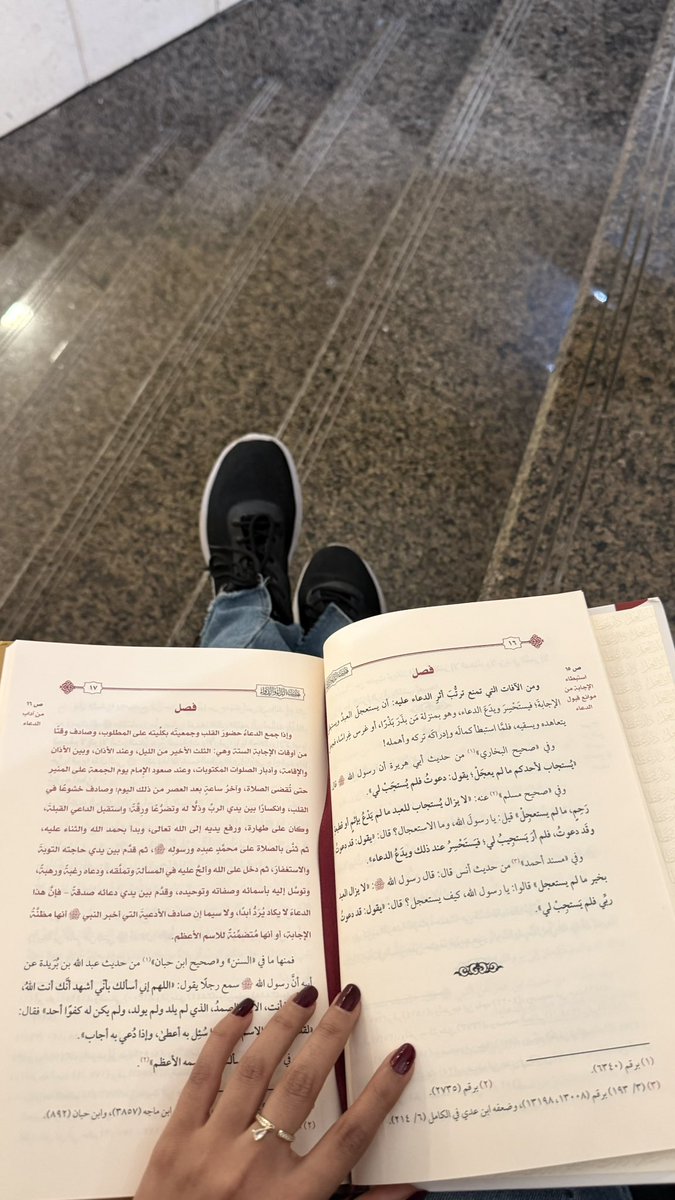 ١٦
فصل
ص ٦٥
استبطاء
الإجابة من
موانع قبول
الدعاء
ومن الآفات التي تمنع ترتُّبَ أثرِ الدعاء عليه: أن يستعجلَ العبدُ
الإجابةَ؛ فيَستحْسِرَ ويدَعُ الدعاء، وهو بمنزلة مَن بذَرَ بَذْرًا أو غرس غِراسًا،
يتعاهده ويسقيه، فلمَّا استبطأ كمالَه وإدراكَه تركَه وأهمله!
وفي «صحيح البخاري»(١) من حديث أبي هريرة أن رسول الله ﷺ
«يُستجاب لأحدكم ما لم يعجَلْ؛ يقول: دعوتُ فلم يُستجَبْ لي».
وفي «صحيح مسلم»(٢) عنه: «لا يزال يُستجاب للعبد ما لم يَدْعُ بإثم أو
رَحِمٍ، ما لم يستعجلْ» قيل: يا رسول الله، وما الاستعجال؟ قال: «يقول: قد دعوتُ
وقد دعوتُ، فلم أرَ يستجِيبُ لي؛ فيَسْتحْسِرُ عند ذلك ويدَعُ الدعاء».
وفي «مسند أحمد»(٣) من حديث أنس قال: قال رسول الله ﷺ: «لا يزال العبد
بخير ما لم يستعجل» قالوا: يا رسول الله، كيف يستعجل؟ قال: «يقول: قد دعوتُ
ربِّي فلم يَستجِبْ لي».
(١) برقم (٦٣٤٠).
(٢) برقم (٢٧٣٥).
(٣) (٣/ ١٩٣) برقم (١٣٠٠٨، ١٣١٩٨)، وضعفه ابن عدي في الكامل (٦/ ٢١٤).
١٧
فصل
ص ٦٦
من آداب
الدعاء
وإذا جمع الدعاءُ حضور القلب وجمعيته بكلّيته على المطلوب، وصادف وقتًا
من أوقات الإجابة الستة وهي: الثلث الأخير من الليل، وعند الأذان، وبين الأذان
والإقامة، وأدبار الصلوات المكتوبات، وعند صعود الإمام يوم الجمعة على المنبر
حتى تُقضى الصلاة، وآخرُ ساعةٍ بعد العصر من ذلك اليوم؛ وصادف خشوعًا في
القلب، وانكسارًا بين يدي الربّ وذلًّا له وتضرُّعًا ورِقَّةً؛ واستقبل الداعي القبلةَ،
وكان على طهارة، ورفع يديه إلى الله تعالى، وبدأ بحمد الله والثناء عليه،
ثم ثنّى بالصلاة على محمّدٍ عبده ورسوله ﷺ، ثم قدَّم بين يدي حاجته التوبةَ
والاستغفارَ، ثم دخل على الله وألحّ عليه في المسألة وتملّقه، ودعاه رغبةً ورهبةً،
وتوسّل إليه بأسمائه وصفاته وتوحيده، وقدَّم بين يدي دعائه صدقةً - فإنَّ هذا
الدعاءَ لا يكاد يُرَدُّ أبدًا، ولا سيما إن صادف الأدعيةَ التي أخبر النبي ﷺ أنها مظنّةُ
الإجابة، أو أنها مُتضمِّنةٌ للاسم الأعظم.
فمنها ما في «السنن» و«صحيح ابن حبان»(١) من حديث عبد الله بن بُرَيدة عن
أبيه أنَّ رسول الله ﷺ سمع رجلًا يقول: «اللهم إني أسألك بأنّي أشهد أنَّك أنت اللهُ،
أنت، الصمدُ، الذي لم يلد ولم يولد، ولم يكن له كفوًا أحد» فقال:
الاسم سُئِل به أعطى، وإذا دُعي به أجاب».
وفي الأعظم»(٢).
ابن ماجه (٣٨٥٧)، وابن حبان (٨٩٢)
(٢)